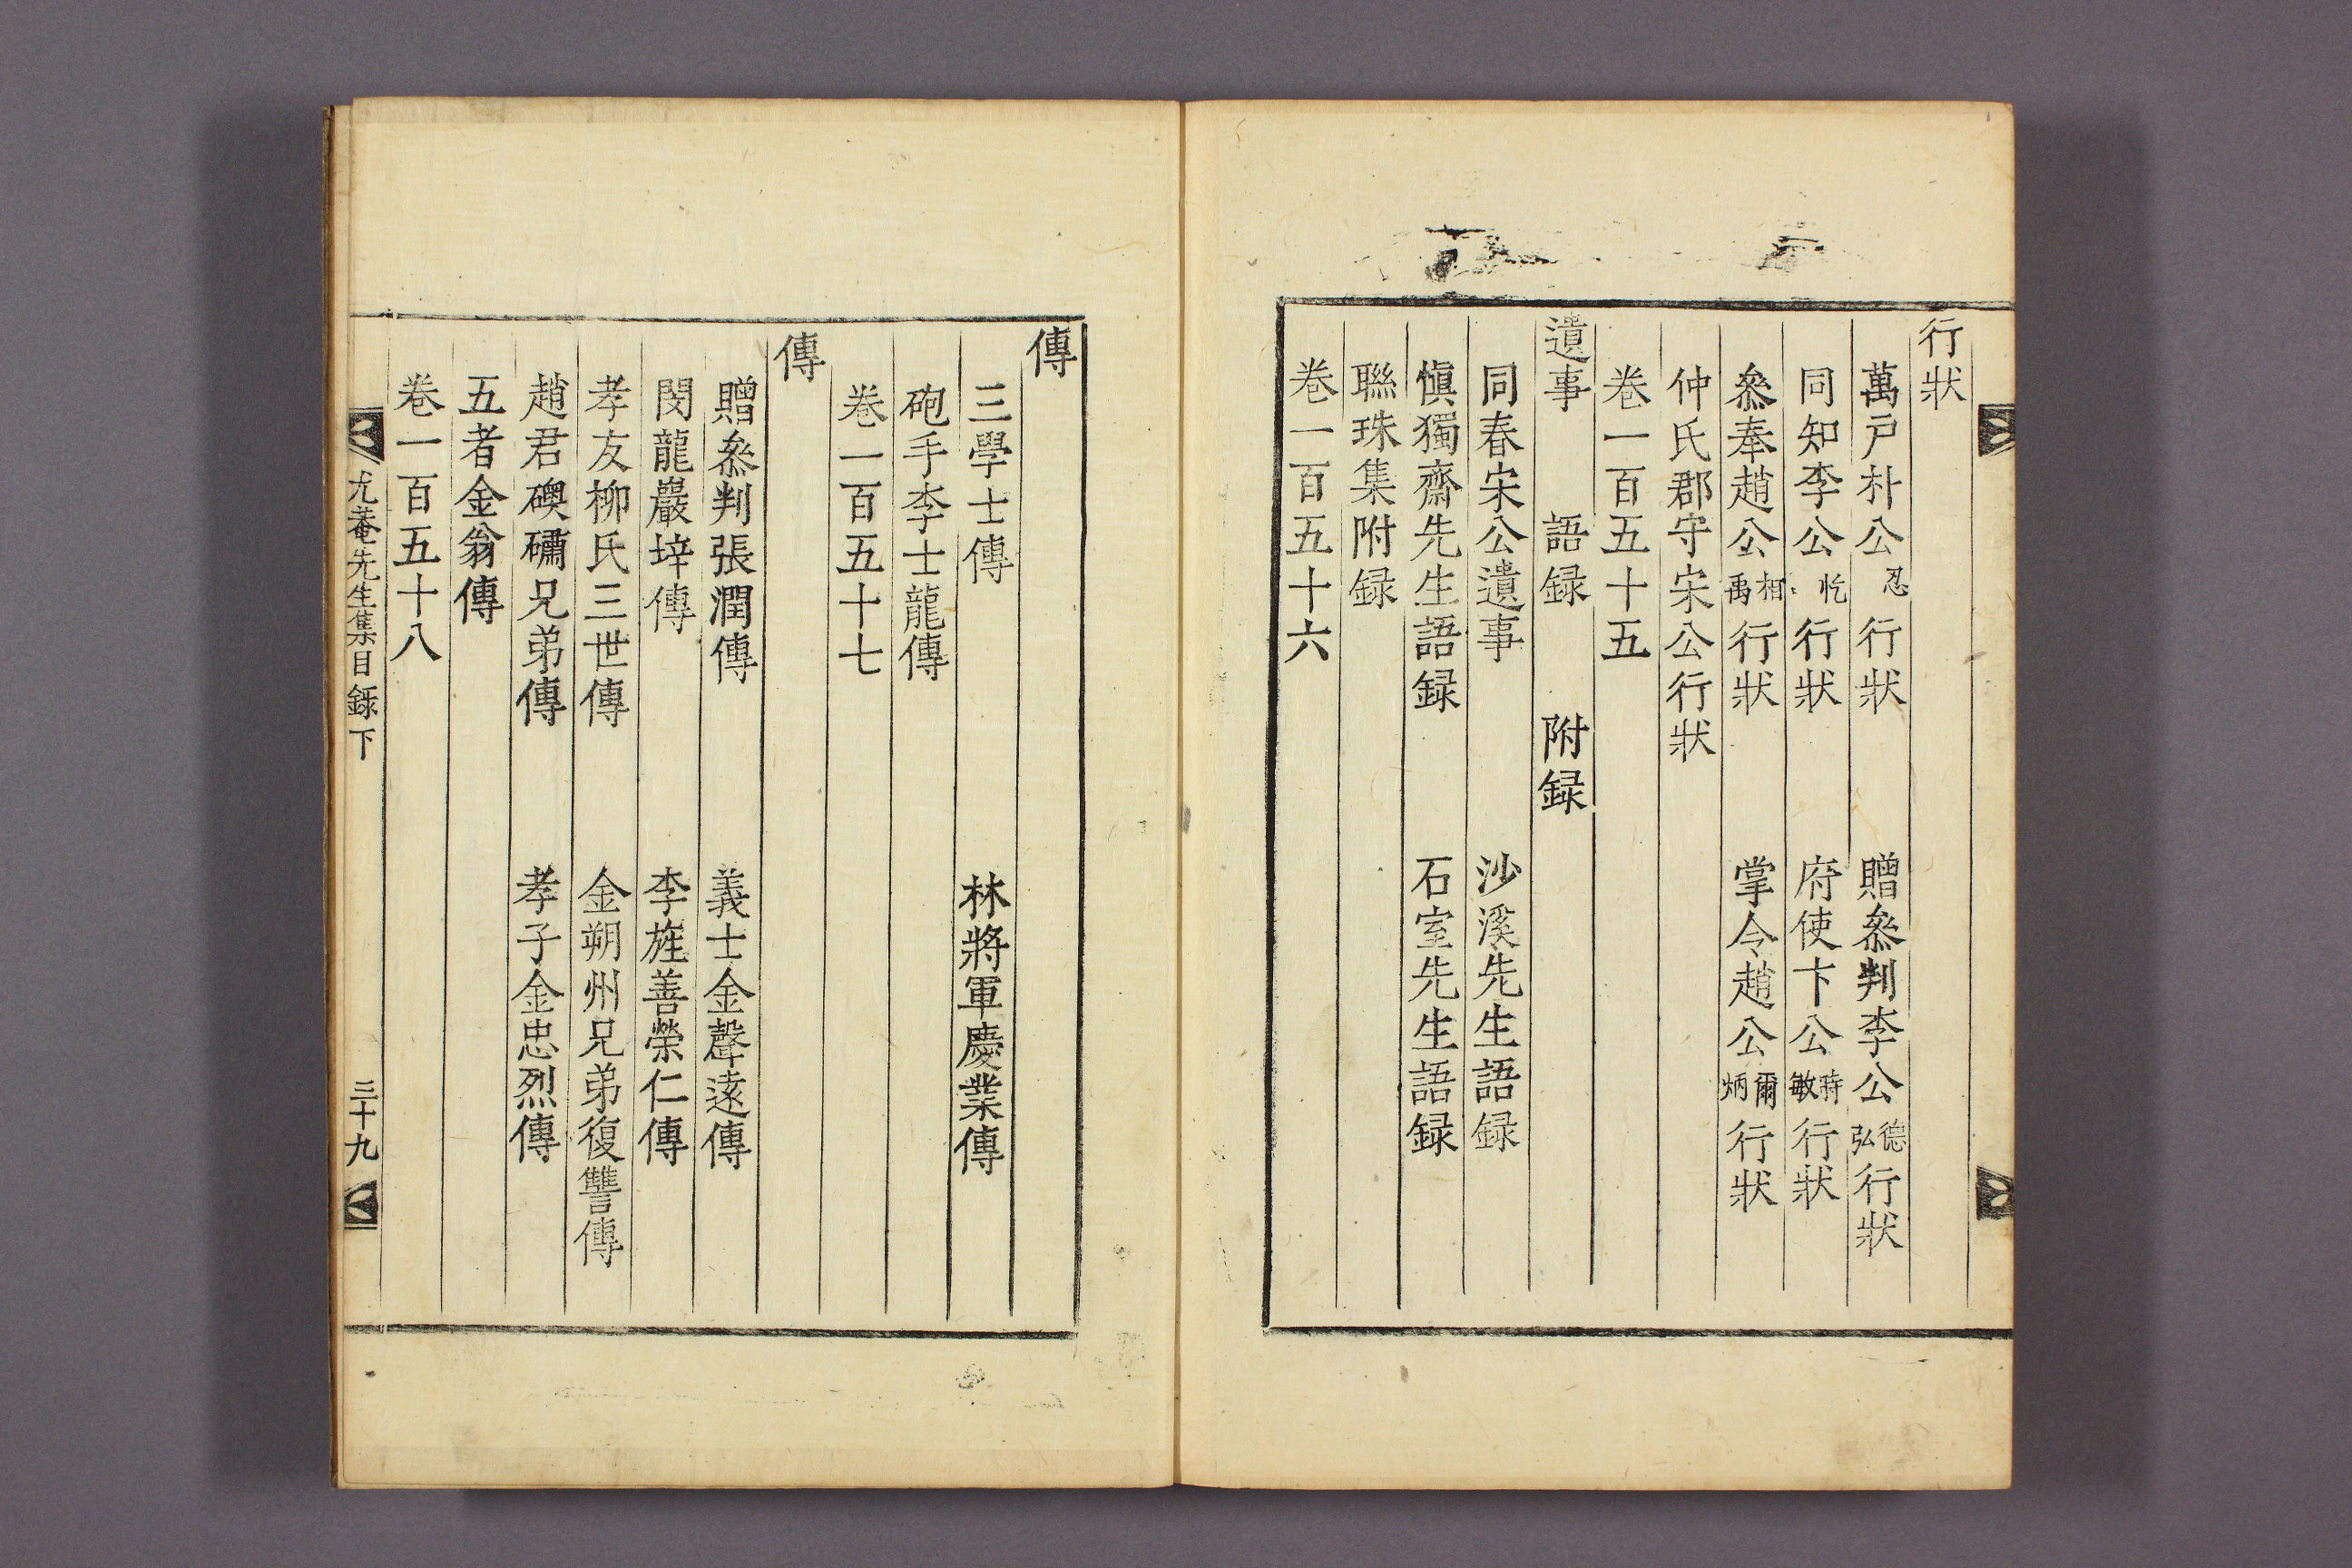 行狀
萬戶朴公忍行狀　贈叅判李公德弘行狀
同知李公忔行狀　府使卞公時敏行狀
叅奉趙公相禹行狀　掌令趙公爾炳行狀
仲氏郡守宋公行狀
卷一百五十五
遺事　語録　附録
同春宋公遺事　沙溪先生語録
愼獨齋先生語録　石室先生語録
聯珠集附録
卷一百五十六
傳
三學士傳　林將軍慶業傳
砲手李士龍傳
卷一百五十七
傳
贈叅判張潤傳　義士金聲遠傳
閔龍巖垶傳　李旌善榮仁傳
孝友柳氏三世傳　金朔州兄弟復讐傳
趙君礇磠兄弟傳　孝子金忠烈傳
五耆金翁傳
卷一百五十八
尤菴先生集目録下　三十九